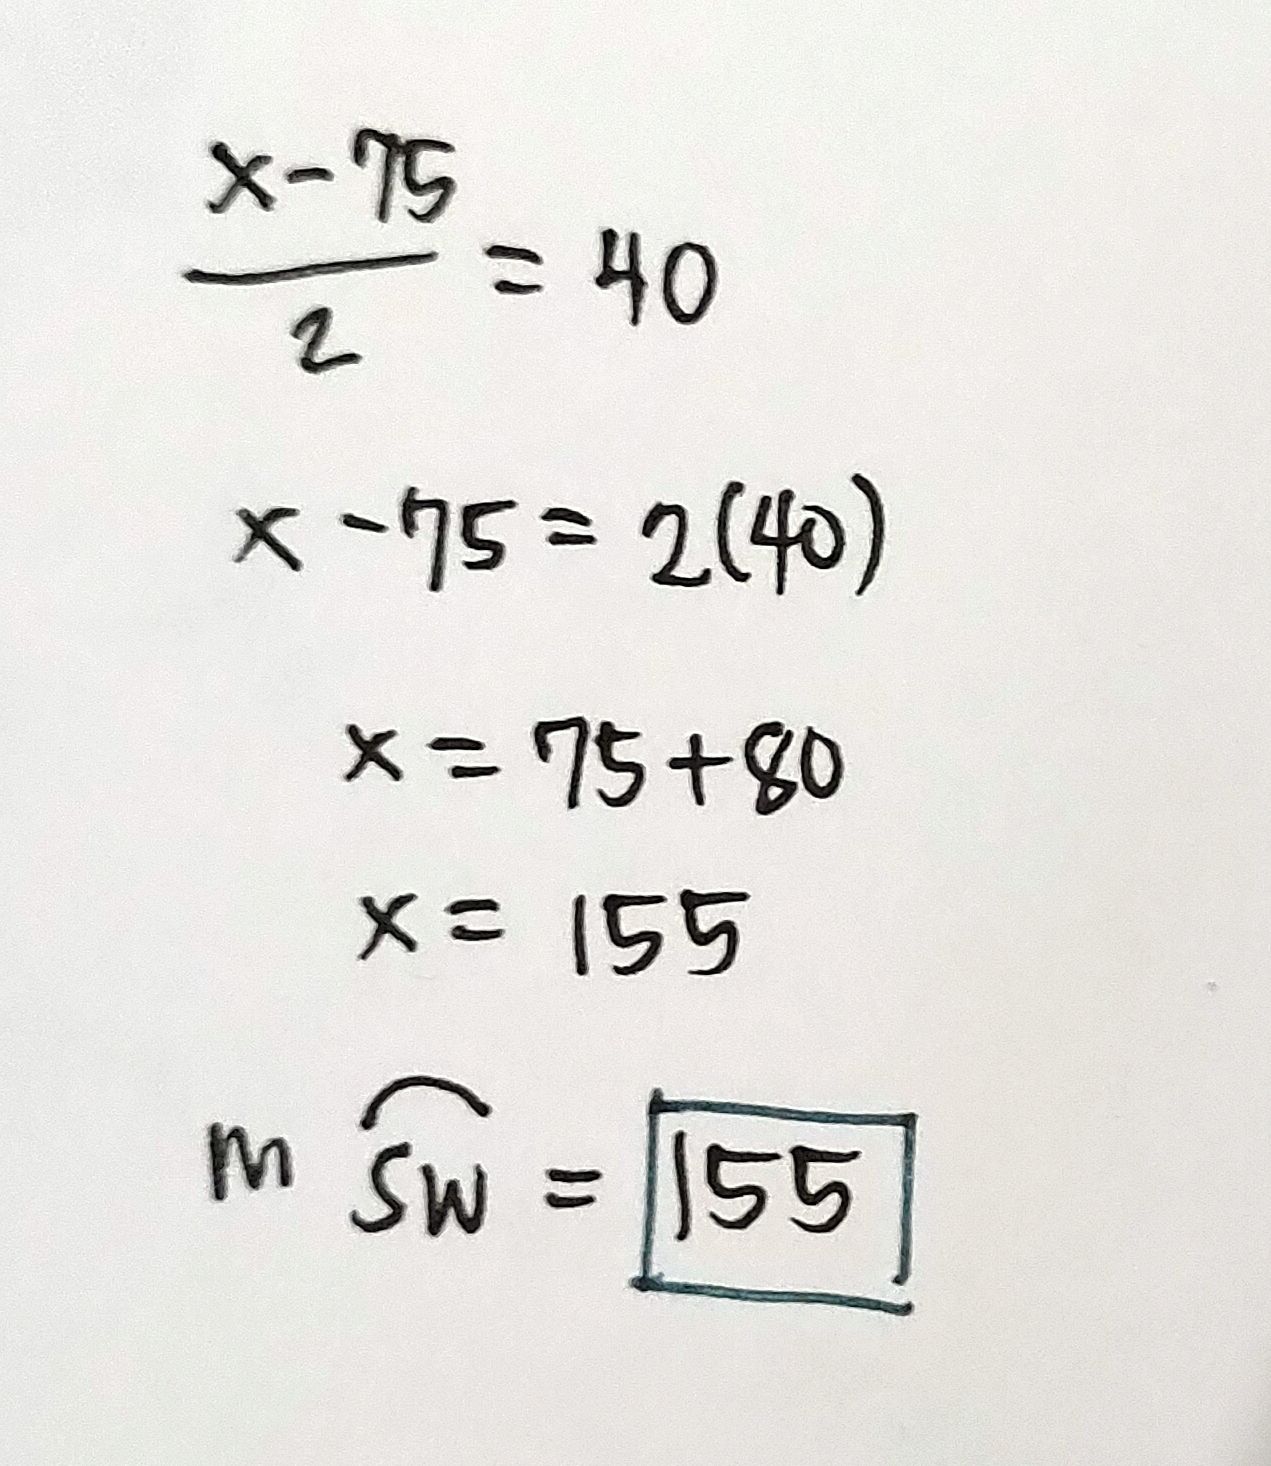 x - 75
2
= 40
x - 75 = 2(40)
x = 75 + 80
x = 155
m SW = 155